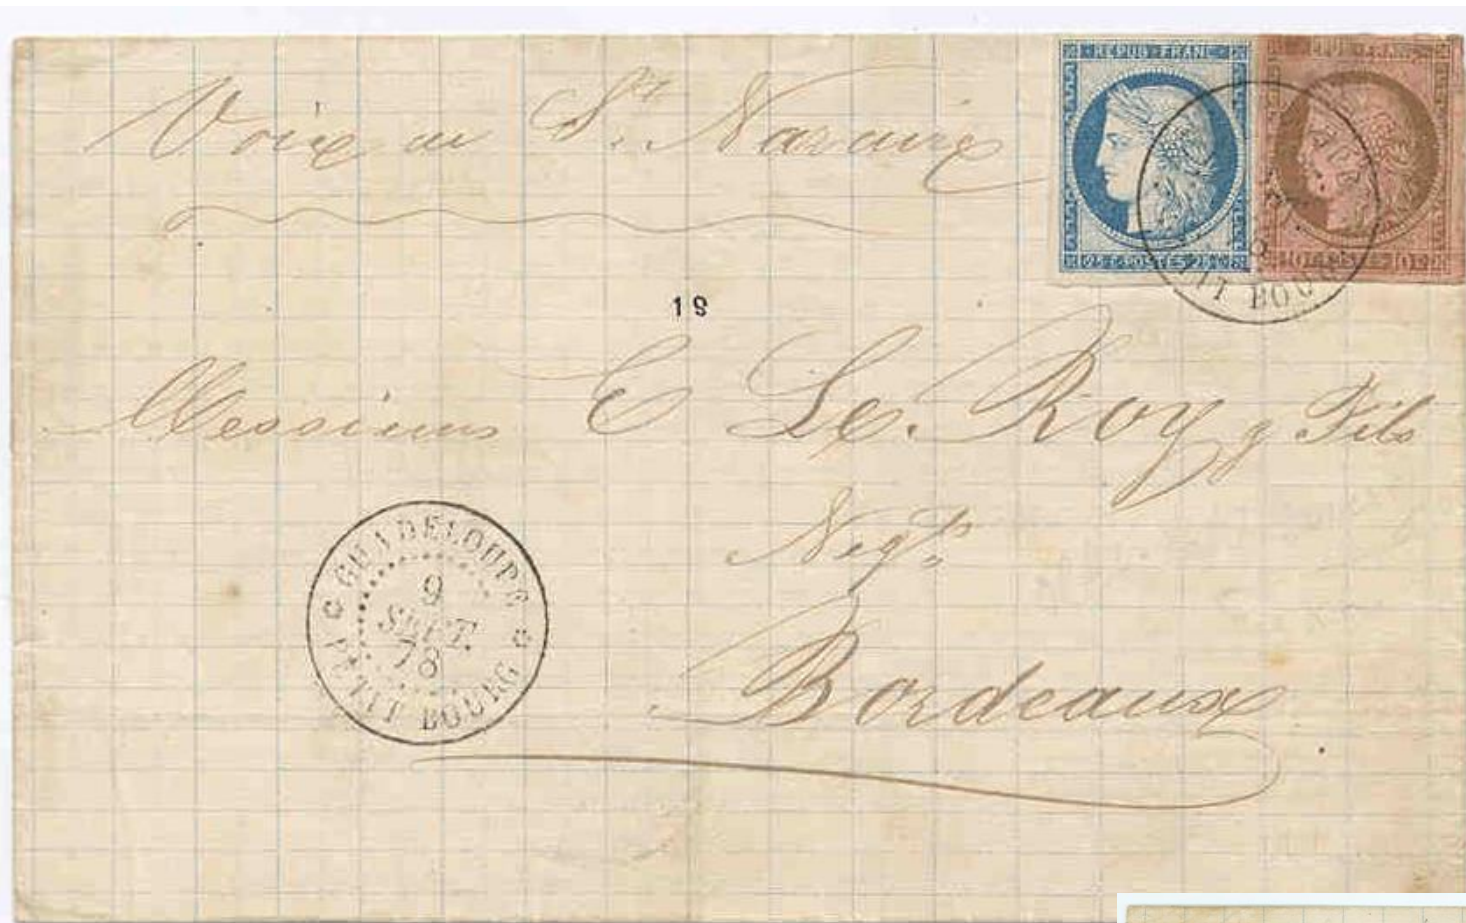 Voie de St. Nazaire
REPUB·FRANC·
25 C·POSTES·25 C
REPUB·FRANC·
10 C 10 C
PETIT BOURG
18
Messieurs E Le. Roy & Fils
Négts
Bordeaux
GUADELOUPE
9
SEPT.
78
PETIT BOURG